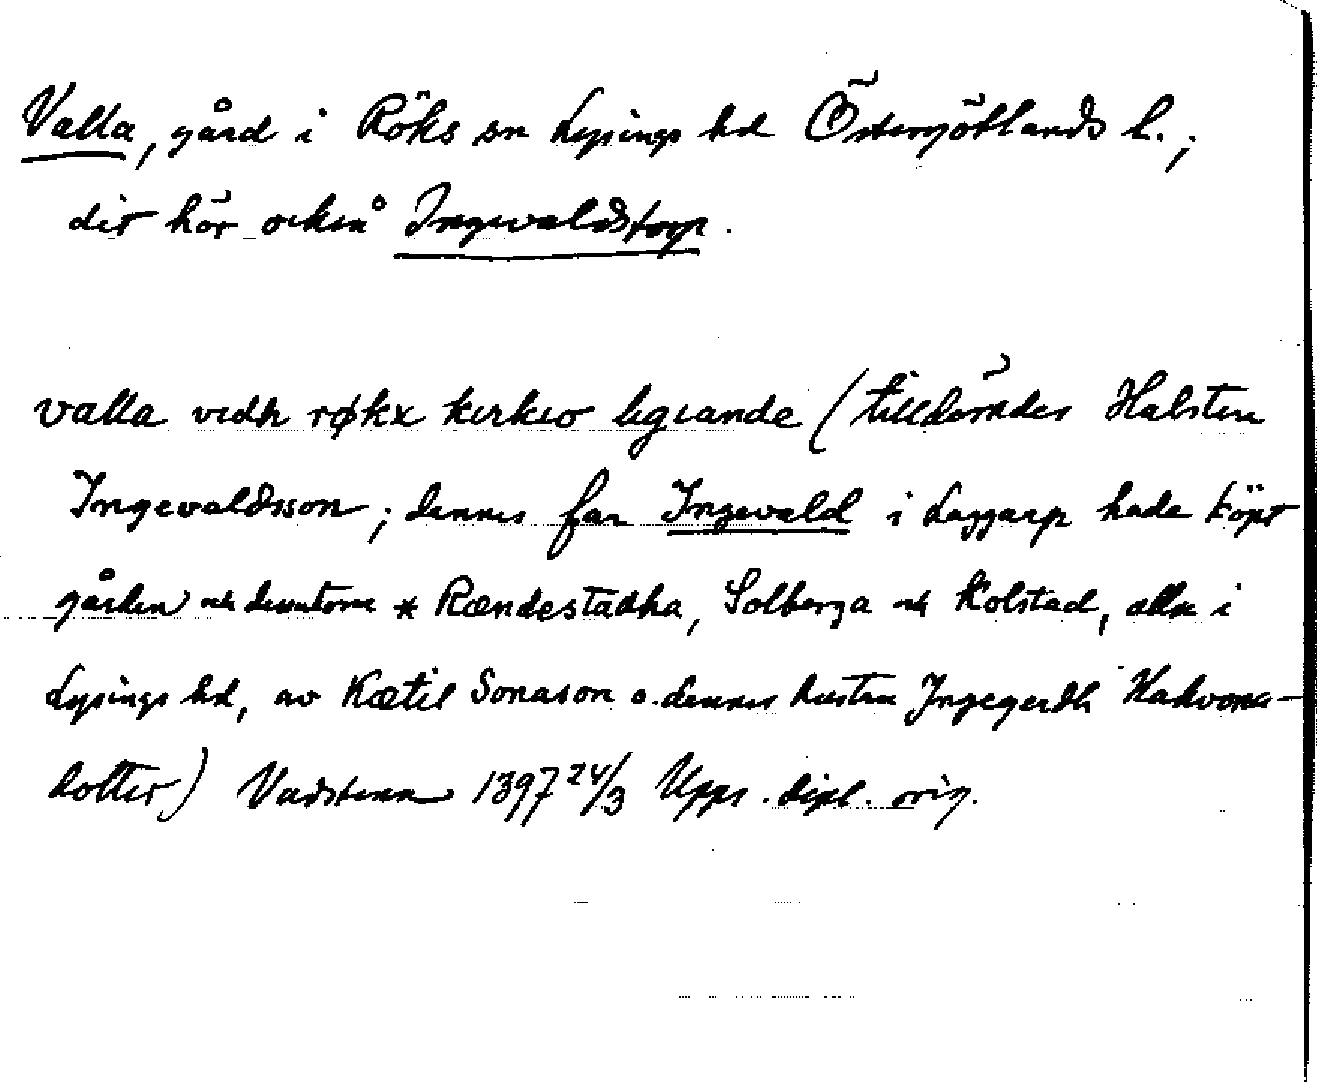 Valla, gård i Röks sn Lysings hd Östergötlands l.;
dit hör också Ingevaldstorp.
valla vidh røkx kirkio ligiande (tilldömdes Halsten
Ingevaldsson; dennes far Ingevald i Laggarp hade köpt
gården och dessutom * Rændestadha, Solberga och Kolstad, alla i
Lysings hd, av Kætil Sonason o. dennes hustru Ingegerdh Hakvona-
dotter) Vadstena 1397 24/3 Upps. dipl. orig.